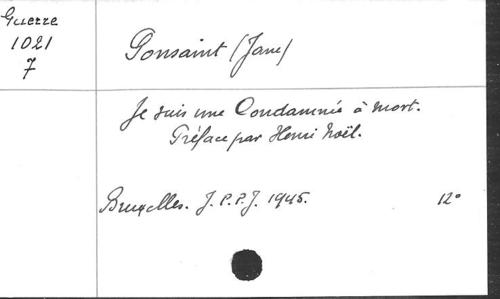 Guerre
1021
7
Ponsaint (Jane)
Je suis une Condamnée à mort.
Préface par Henri Noël.
Bruxelles. J.P.P.J. 1945. 12°